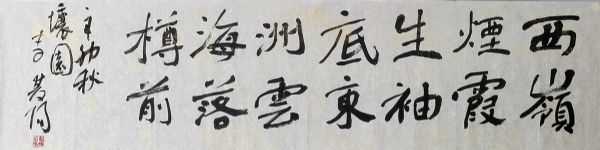 西嶺
煙霞
生袖
底東
洲雲
海落
樽前
辛卯秋